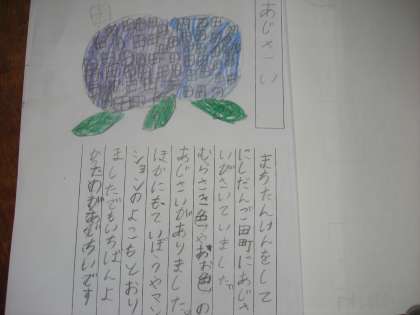 あじさい
まちたんけんをして
にしだんご田町にあじさ
いがさいていました。
むらさき色やあお色の
あじさいがありました。
ほかにもていぼうやマン
ションのよこもとおり
ましたでもいちばんよ
かたのがあじさいです